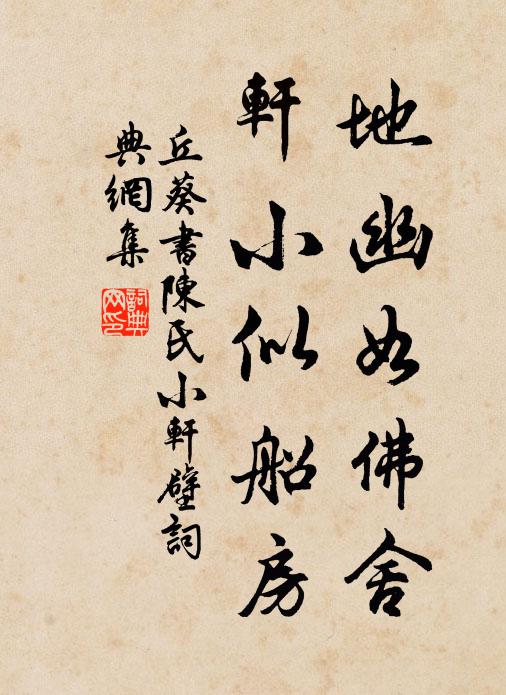 地幽如佛舍
軒小似船房
丘葵書陳氏小軒壁詞
典網集
詞典网印